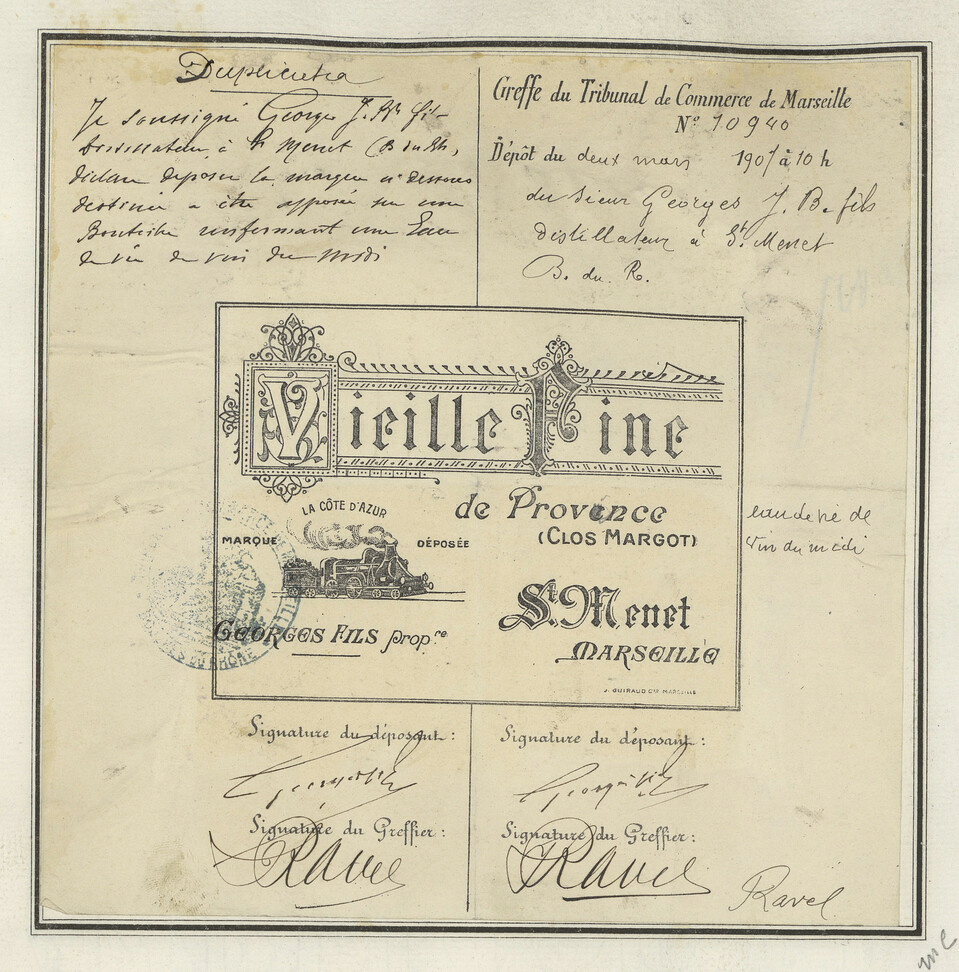 Duplicata
Je soussigné Georges J. Bte fils
distillateur à St Menet (B du Rh,
déclare déposer la marque ci dessous
destinée a être apposée sur une
Bouteille renfermant une Eau
de vie de vin du Midi
Greffe du Tribunal de Commerce de Marseille
N° 10940
Dépôt du deux mars 1907 à 10 h
du Sieur Georges J. B. fils
Distillateur à St. Menet
B. du R.
Vieille Fine
de Provence
(CLOS MARGOT)
LA CÔTE D'AZUR
MARQUE DÉPOSÉE
GEORGES FILS propre
St. Menet
MARSEILLE
J. GUIRAUD Cie MARSEILLE
eau de vie de
vin du midi
DU RHÔNE
Signature du déposant :
Georges fils
Signature du Greffier :
Ravel
Signature du déposant :
Georges fils
Signature du Greffier :
Ravel
Ravel